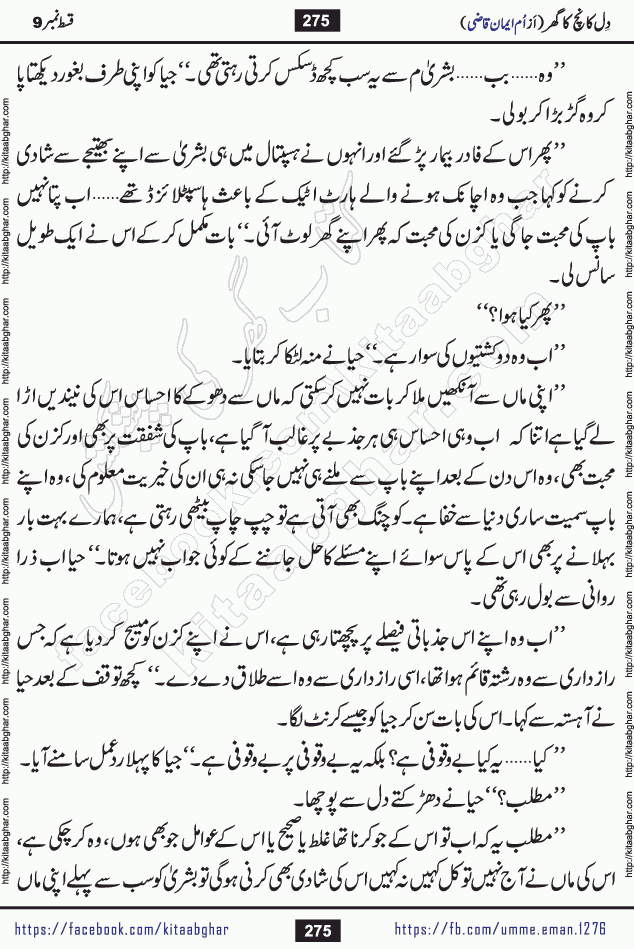 قسط نمبر 9
275
دِل کانچ کا گھر (اَز اُم ایمان قاضی)
’’وہ...... بب...... بشریٰ م سے یہ سب کچھ ڈسکس کرتی رہتی تھی۔‘‘ جیا کو اپنی طرف بغور دیکھتا پا
کر وہ گڑبڑا کر بولی۔
’’پھر اس کے فادر بیمار پڑ گئے اور انہوں نے ہسپتال میں ہی بشریٰ سے اپنے بھتیجے سے شادی
کرنے کو کہا جب وہ اچانک ہونے والے ہارٹ اٹیک کے باعث ہاسپٹلائزڈ تھے...... اب پتا نہیں
باپ کی محبت جاگی یا کزن کی محبت کہ پھر اپنے گھر لوٹ آئی۔‘‘ بات مکمل کر کے اس نے ایک طویل
سانس لی۔
’’پھر کیا ہوا؟‘‘
’’اب وہ دو کشتیوں کی سوار ہے۔‘‘ حیا نے منہ لٹکا کر بتایا۔
’’اپنی ماں سے آنکھیں ملا کر بات نہیں کر سکتی کہ ماں سے دھوکے کا احساس اس کی نیندیں اڑا
لے گیا ہے اتنا کہ اب وہی احساس ہی ہر جذبے پر غالب آ گیا ہے، باپ کی شفقت پر بھی اور کزن کی
محبت بھی، وہ اس دن کے بعد اپنے باپ سے ملنے ہی نہیں جا سکی نہ ہی ان کی خیریت معلوم کی، وہ اپنے
باپ سمیت ساری دنیا سے خفا ہے۔ کوچنگ بھی آتی ہے تو چپ چاپ بیٹھی رہتی ہے، ہمارے بہت بار
بہلانے پر بھی اس کے پاس سوائے اپنے مسئلے کا حل جاننے کے کوئی جواب نہیں ہوتا۔‘‘ حیا اب ذرا
روانی سے بول رہی تھی۔
’’اب وہ اپنے اس جذباتی فیصلے پر پچھتا رہی ہے، اس نے اپنے کزن کو میسج کر دیا ہے کہ جس
رازداری سے وہ رشتہ قائم ہوا تھا، اسی رازداری سے وہ اسے طلاق دے دے۔‘‘ کچھ توقف کے بعد حیا
نے آہستہ سے کہا۔ اس کی بات سن کر جیا کو جیسے کرنٹ لگا۔
’’کیا...... یہ کیا بے وقوفی ہے؟ بلکہ یہ بے وقوفی پر بے وقوفی ہے۔‘‘ جیا کا پہلا ردِعمل سامنے آیا۔
’’مطلب؟‘‘ حیا نے دھڑکتے دل سے پوچھا۔
’’مطلب یہ کہ اب تو اس کے جو کرنا تھا غلط یا صحیح یا اس کے عوامل جو بھی ہوں، وہ کر چکی ہے،
اس کی ماں نے آج نہیں تو کل کہیں نہ کہیں اس کی شادی بھی کرنی ہو گی تو بشریٰ کو سب سے پہلے اپنی ماں
http://kitaabghar.com http://kitaabghar.com http://kitaabghar.com http://kitaabghar.com http://kitaabghar.com http://kitaabghar.com http://kitaabghar.com http://kitaabghar.com
http://kitaabghar.com http://kitaabghar.com http://kitaabghar.com http://kitaabghar.com http://kitaabghar.com http://kitaabghar.com http://kitaabghar.com http://kitaabghar.com
کتاب گھر کی پیشکش
kitaabghar.com
facebook.com/kitaabghar
https://facebook.com/kitaabghar
275
https://fb.com/umme.eman.1276